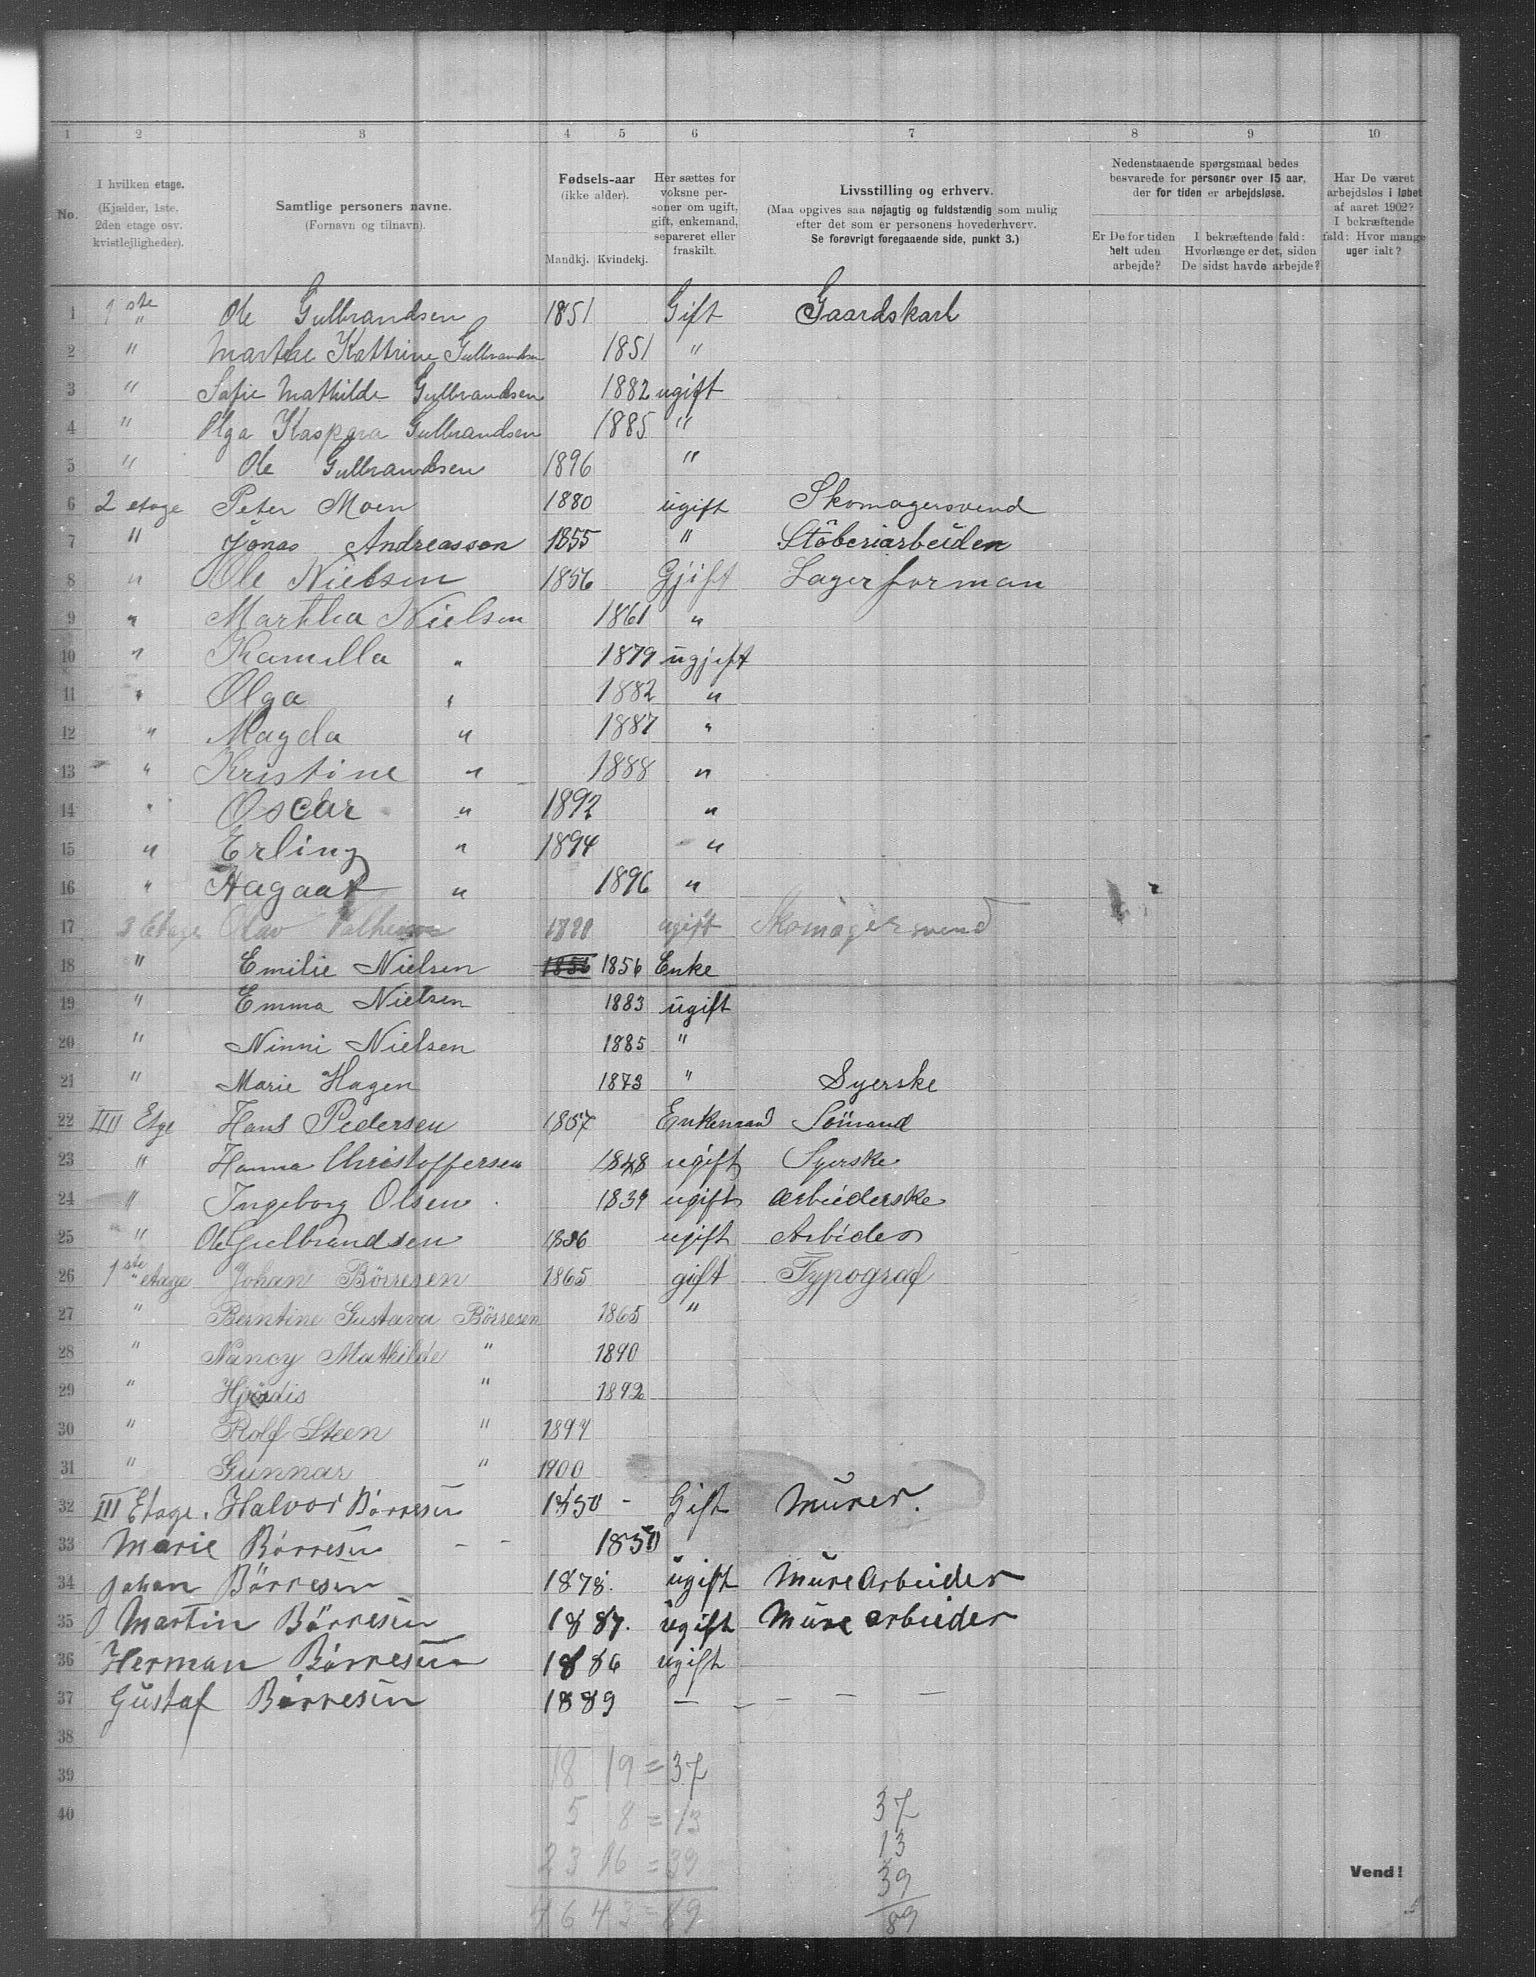 1 2 3 4 5 6 7 8 9 10
No.
I hvilken etage.
(Kjælder, 1ste.
2den etage osv.
kvistlejligheder).
Samtlige personers navne.
(Fornavn og tilnavn).
Fødsels-aar
(ikke alder).
Mandkj. Kvindekj.
Her sættes for
voksne per-
soner om ugift,
gift, enkemand,
separeret eller
fraskilt.
Livsstilling og erhverv.
(Maa opgives saa nøjagtig og fuldstændig som mulig
efter det som er personens hovederhverv.
Se forøvrigt foregaaende side, punkt 3.)
Nedenstaaende spørgsmaal bedes
besvarede for personer over 15 aar,
der for tiden er arbejdsløse.
Er De for tiden
helt uden
arbejde?
I bekræftende fald:
Hvorlænge er det, siden
De sidst havde arbejde?
Har De været
arbejdsløs i løbet
af aaret 1902?
I bekræftende
fald: Hvor mange
uger ialt?
1 1ste " Ole Gulbrandsen 1851 Gift Gaardskarl
2 " Marthe Kattrine Gulbrandsen 1851 "
3 " Sofie Mathilde Gulbrandsen 1882 ugift
4 " Olga Kaspara Gulbrandsen 1885 "
5 " Ole Gulbrandsen 1896 "
6 2 etage Peter Moen 1880 ugift Skomagersvend
7 " Jonas Andreasson 1855 " Stöberiarbeiden
8 " Ole Nielsen 1856 Gjift Lagerforman
9 " Martha Nielsen 1861 "
10 " Kamilla " 1879 ugjift
11 " Olga " 1882 "
12 " Magda " 1887 "
13 " Kristine " 1888 "
14 " Oscar " 1892 "
15 " Erling " 1894 "
16 " Hagaat " 1896 "
17 3 Etage Olav ugift Skomagersvend
18 " Emilie Nielsen 1856 1856 Enke
19 " Emma Nielsen 1883 ugift
20 " Ninni Nielsen 1885 "
21 " Marie Hagen 1873 " Syerske
22 IIII Etge Hans Pedersen 1857 Enkemand Sömand
23 " Hanna Christoffersen 1848 ugift Syerske
24 " Ingeborg Olsen 1839 ugift Arbeiderske
25 " Ole Gulbrandsen 1886 ugift Arbeider
26 1ste " etage Johan Börresen 1865 gift Typograf
27 " Berntine Gustava Börresen 1865 "
28 " Nancy Mathilde " 1890
29 " Hjördis " 1892
30 " Rolf Steen " 1894
31 " Gunnar " 1900
32 III Etage. Halvor Börresen 1850 - Gift Murer.
33 Marie Börresen - - 1850
34 Johan Börresen 1878. ugift Mure Arbeider
35 Martin Börresen 1887. ugift Mure arbeider
36 Herman Börresen 1886 ugift
37 Gustaf Börresen 1889 — - - — —
38 18 19 = 37
39
40 5 8 = 13 37
13
23 16 = 39 39
46 43 = 89 89
Vend!
5